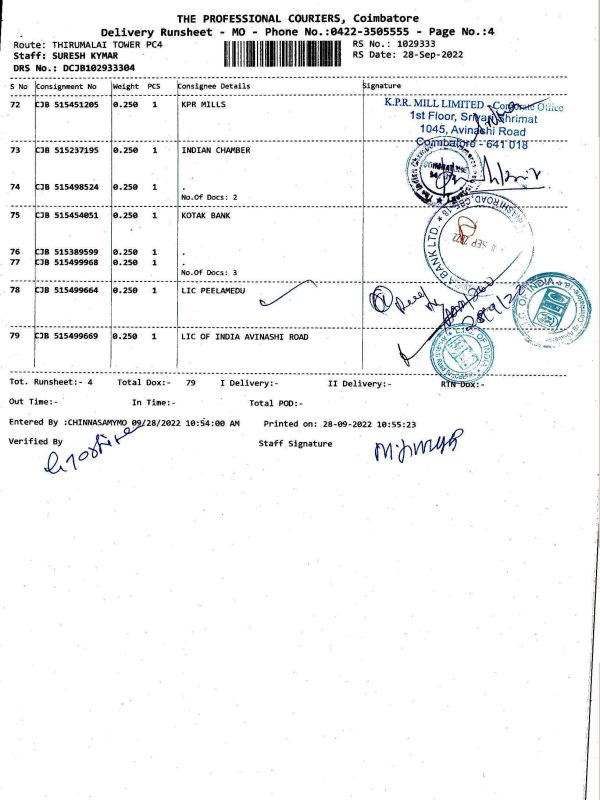 THE PROFESSIONAL COURIERS, Coimbatore
Delivery Runsheet - MO - Phone No.:0422-3505555 - Page No.:4
Route: THIRUMALAI TOWER PC4 RS No.: 1029333
Staff: SURESH KYMAR RS Date: 28-Sep-2022
DRS No.: DCJB102933304
S No Consignment No Weight PCS Consignee Details Signature
72 CJB 515451205 0.250 1 KPR MILLS
K.P.R. MILL LIMITED - Corporate Office
1st Floor, Srivari Shrimat
1045, Avinashi Road
Coimbatore - 641 018
73 CJB 515237195 0.250 1 INDIAN CHAMBER
74 CJB 515498524 0.250 1 .
No.Of Docs: 2
75 CJB 515454051 0.250 1 KOTAK BANK
76 CJB 515389599 0.250 1 .
77 CJB 515499968 0.250 1 .
No.Of Docs: 3
78 CJB 515499664 0.250 1 LIC PEELAMEDU
28/9/22
79 CJB 515499669 0.250 1 LIC OF INDIA AVINASHI ROAD
Tot. Runsheet:- 4 Total Dox:- 79 I Delivery:- II Delivery:- RTN Dox:-
Out Time:- In Time:- Total POD:-
Entered By :CHINNASAMYMO 09/28/2022 10:54:00 AM Printed on: 28-09-2022 10:55:23
Verified By Staff Signature